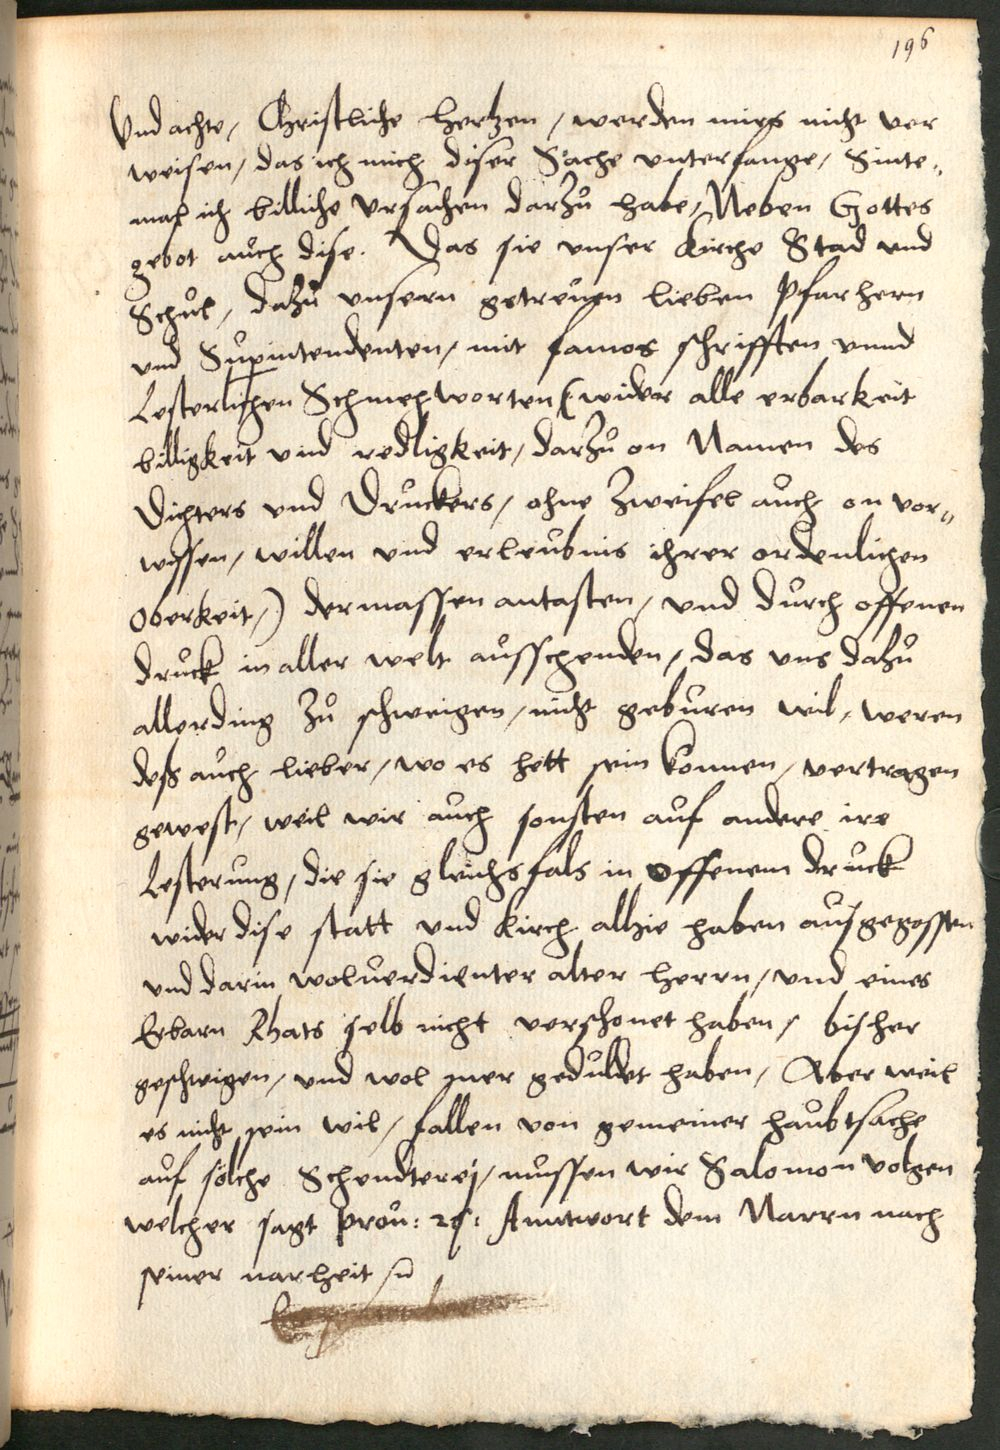 196
Vnd achte, Christliche hertzen, werden mirs nicht ver
weisen, das ich mich diser Sache vnterfange, Sinte-
mal ich billiche vrsachen darzu habe, Neben Gottes
gebot auch dise. Das sie vnser Kirche Stad vnd
Schul, dazu vnsern getreuen lieben Pfarhern
vnd Supintendenten, mit famos schrifften vnnd
Lesterlichen Schmehworten (wider alle erbarkeit
billigkeit vnd redligkeit, darzu on Namen des
Dichters vnd Druckers, ohne Zweifel auch on vor-
wissen, willen vnd erleubnis ihrer ordenlichen
Oberkeit,) dermassen antasten, vnd durch offenen
druck in aller welt ausschenden, das vns dazu
allerding zu schweigen, nicht geburen wil, weren
deß auch lieber, wo es hett sein konnen, vertragen
gewest, weil wir auch sonsten auf andere ire
Lesterung, die sie gleichsfals in offenem druck
wider dise statt vnd kirch alhie haben ausgegossen
vnd darin woluerdienter alter herrn, vnd eines
Erbarn Rhats selb nicht verschonet haben, bisher
geschwigen, vnd wol mer geduldet haben, Aber weil
es nicht sein wil, fallen von gemeiner haubtsache
auf solche Schendterej, mussen wir Salomon volgen
welcher sagt prou: 26: Anntwort dem Narrn nach
seiner narheit